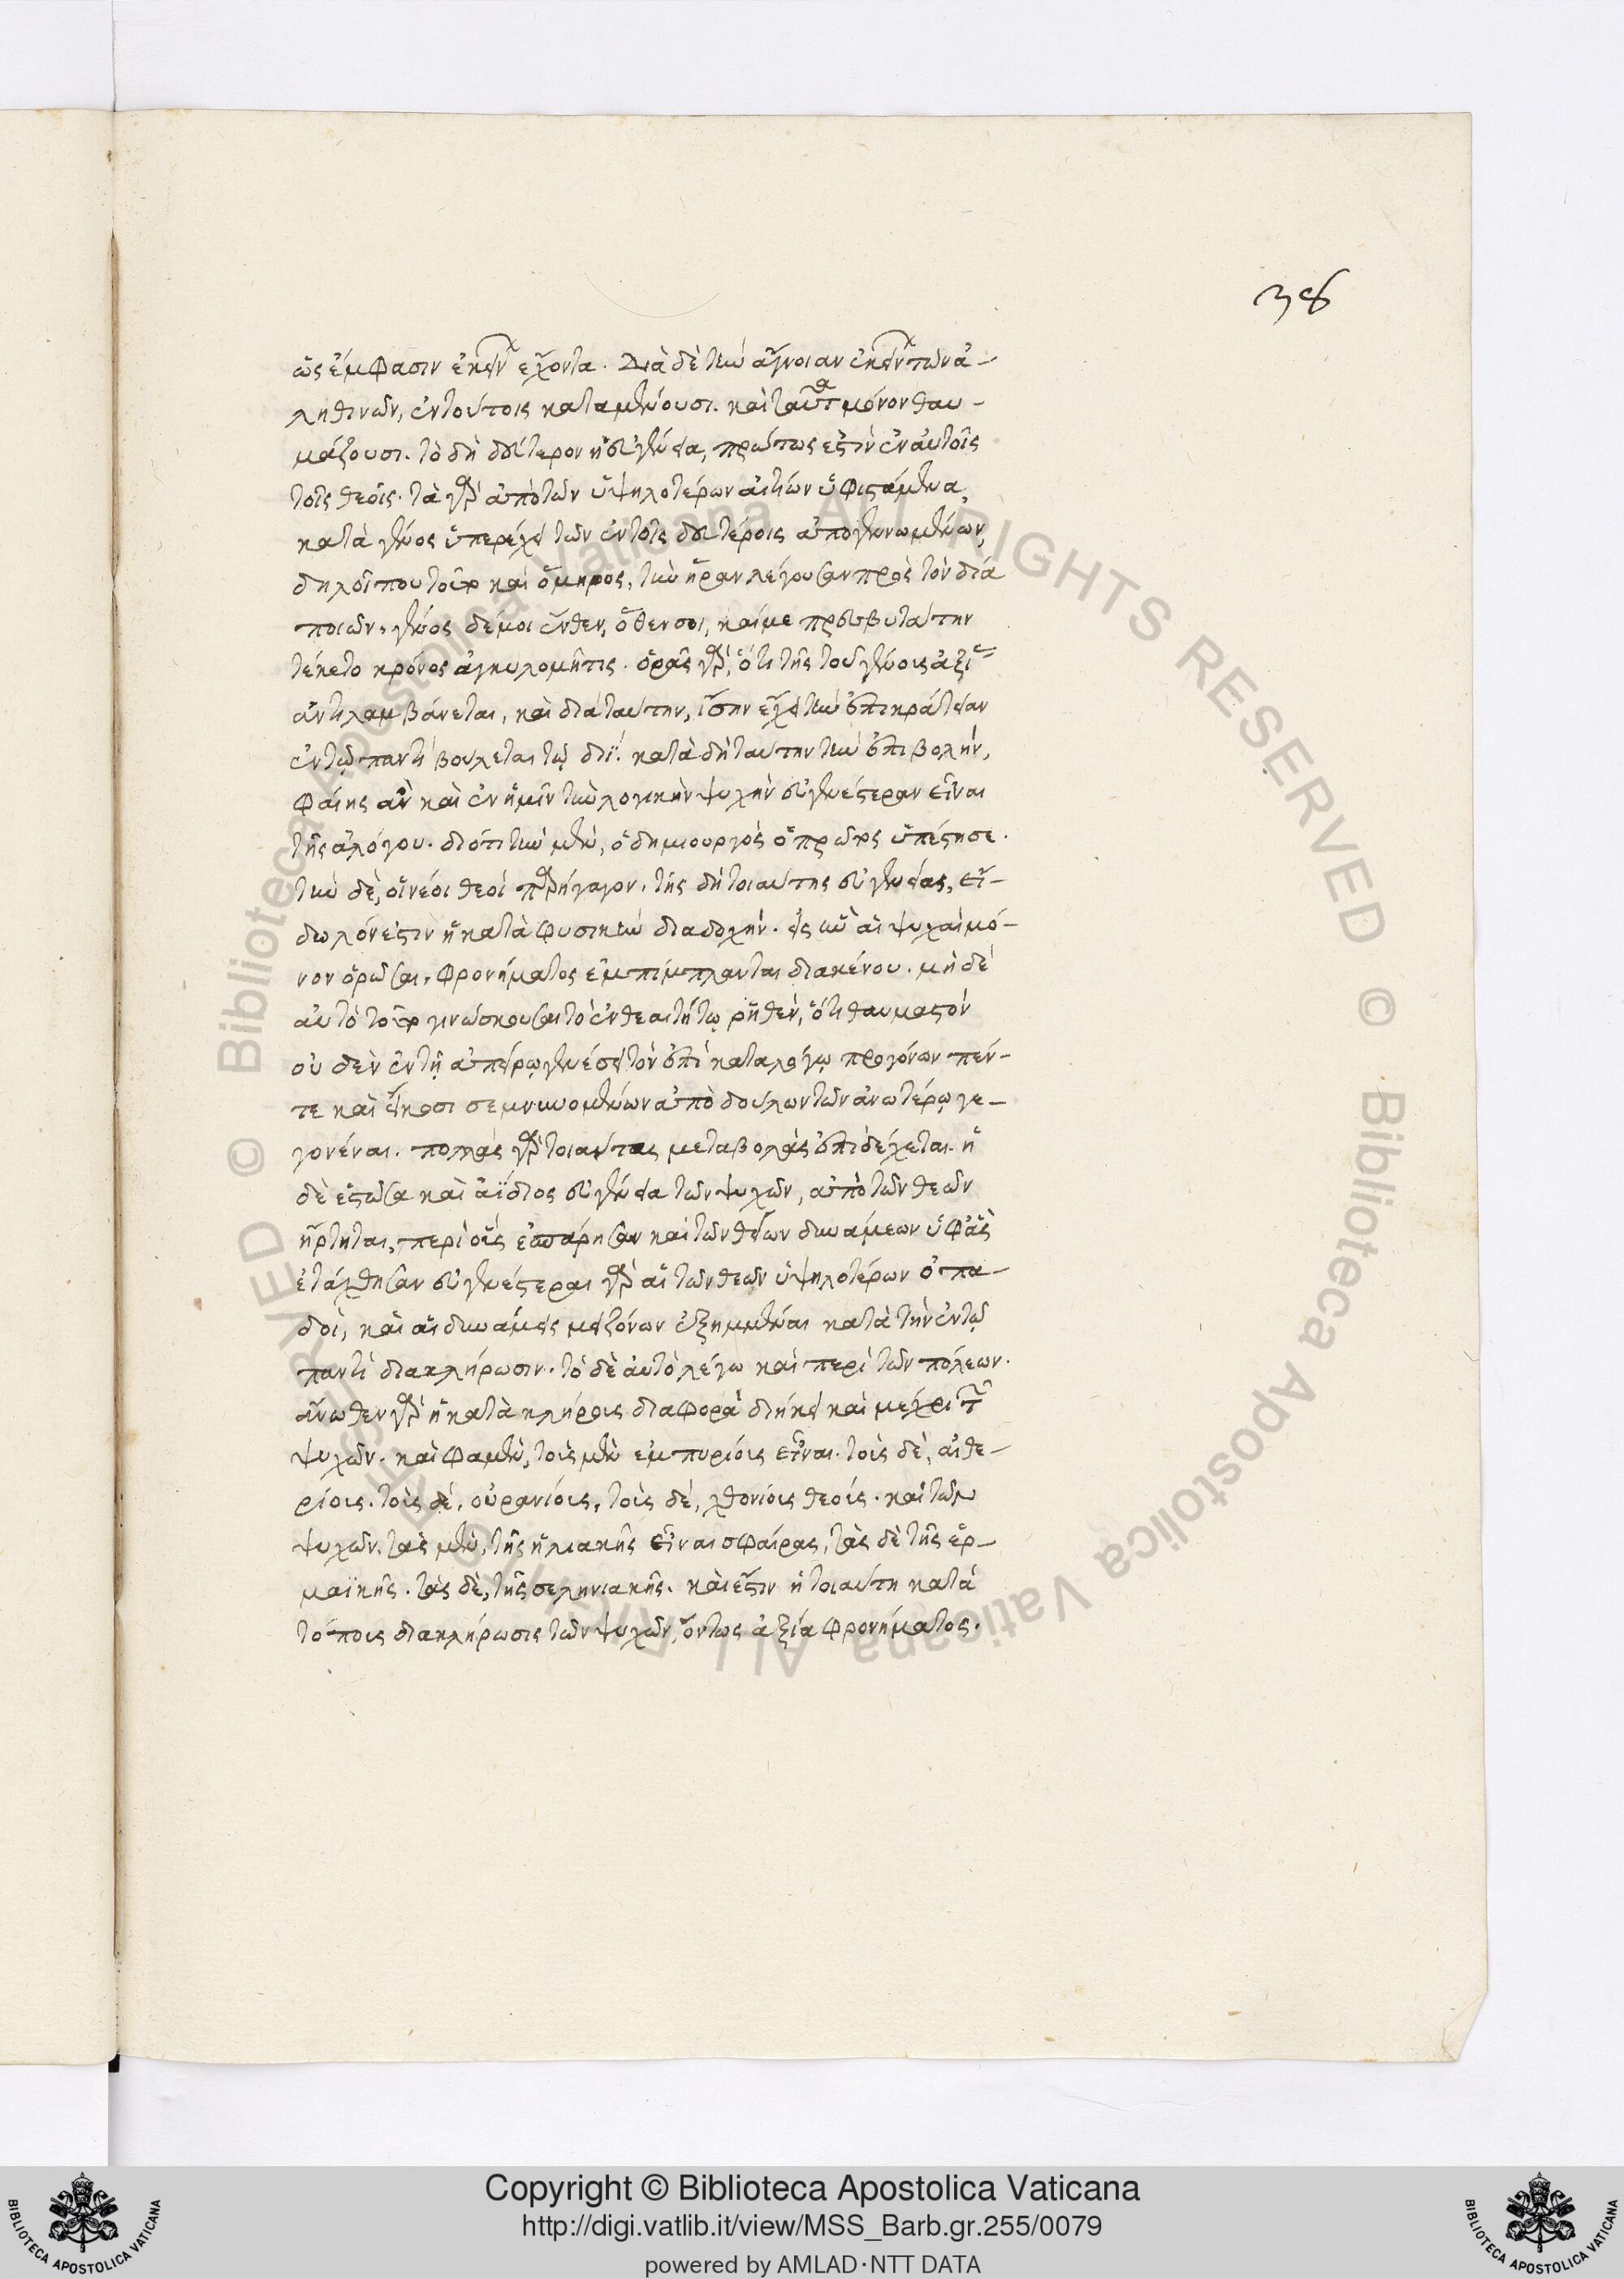 38
ὡς ἔμφασιν ἐκείνων ἔχοντα. Διὰ δὲ τὴν ἄγνοιαν ἐκείνων τῶν ἀ-
ληθινῶν, ἐν τούτοις καταμένουσι. καὶ ταῦτα μόνον θαυ-
μάζουσι. τὸ δὴ δεύτερον ἡ εὐγένεια, πρώτως ἐστὶν ἐν αὐτοῖς
τοῖς θεοῖς. τὰ γὰρ ἀπὸ τῶν ὑψηλοτέρων αἰτιῶν ὑφιστάμενα,
κατὰ γένος ὑπερέχει τῶν ἐν τοῖς δευτέροις ἀπογεννωμένων,
δηλοῖ που τοῦτο καὶ ὅμηρος, τὴν ἥραν λέγουσαν πρὸς τὸν δία
ποιῶν, γένος δέ μοι ἔνθεν, ὅθεν σοι, καί με πρεσβυτάτην
τέκετο κρόνος ἀγκυλομῆτις. ὁρᾷς γὰρ, ὅτι τῆς τοῦ γένους ἀξίας
ἀντιλαμβάνεται, καὶ διὰ ταύτην, ἴσην ἔχειν τὴν ἐπικράτειαν
ἐν τῷ παντὶ βούλεται τῷ διΐ. κατὰ δὴ ταύτην τὴν ἐπιβολήν,
φαίης ἂν καὶ ἐν ἡμῖν τὴν λογικὴν ψυχὴν εὐγενέστεραν εἶναι
τῆς ἀλόγου. διότι τὴν μὲν, ὁ δημιουργὸς ὁ πρῶτος ὑπέστησε.
τὴν δὲ, οἱ νέοι θεοὶ παρήγαγον. τῆς δὴ τοιαύτης εὐγενείας, εἴ-
δωλόν ἐστιν ἡ κατὰ φυσικὴν διαδοχήν. εἰς ἣν αἱ ψυχαὶ μό-
νον ὁρῶσαι, φρονήματος ἐμπίμπλανται διακένου. μὴ δὲ
αὐτὸ τοῦτο γινώσκουσαι τὸ ἐν θεαιτήτῳ ῥηθὲν, ὅτι θαυμαστὸν
οὐδὲν ἐν τῇ ἀπείρῳ γενέσει τὸν ἐπὶ καταλόγῳ προγόνων πέν-
τε καὶ εἴκοσι σεμνυνομένων ἀπὸ δούλων τῶν ἀνωτέρῳ γε-
γονέναι. πολλὰς γὰρ τοιαύτας μεταβολὰς ἐπιδέχεται. ἡ
δὲ ἑστῶσα καὶ ἀΐδιος εὐγένεια τῶν ψυχῶν, ἀπὸ τῶν θεῶν
ἤρτηται, περὶ οὓς ἐσπάρησαν καὶ τῶν θείων δυνάμεων ὑφ' ἃς
ἐτάχθησαν εὐγενέστεραι γὰρ αἱ τῶν θεῶν ὑψηλοτέρων ὀπα-
δοὶ, καὶ αἱ δυνάμεις μειζόνων ἐξημμέναι κατὰ τὴν ἐν τῷ
παντὶ διακλήρωσιν. τὸ δὲ αὐτὸ λέγω καὶ περὶ τῶν πόλεων.
ἄνωθεν γὰρ ἡ κατὰ κλήρους διαφορὰ διήκει καὶ μέχρι τῶν
ψυχῶν. καὶ φαμὲν, τοὺς μὲν ἐμπυρίους εἶναι. τοὺς δὲ, αἰθε-
ρίους. τοὺς δὲ, οὐρανίους, τοὺς δὲ, χθονίους θεούς. καὶ τῶν
ψυχῶν, τὰς μὲν, τῆς ἡλιακῆς εἶναι σφαίρας, τὰς δὲ τῆς ἑρ-
μαϊκῆς. τὰς δὲ, τῆς σεληνιακῆς. καὶ ἔστιν ἡ τοιαύτη κατὰ
τόπους διακλήρωσις τῶν ψυχῶν, ὄντως ἀξία φρονήματος.
© Biblioteca Apostolica Vaticana ALL RIGHTS RESERVED © Biblioteca Apostolica Vaticana ALL RIGHTS RESERVED
BIBLIOTECA APOSTOLICA VATICANA
Copyright © Biblioteca Apostolica Vaticana
http://digi.vatlib.it/view/MSS_Barb.gr.255/0079
powered by AMLAD·NTT DATA
BIBLIOTECA APOSTOLICA VATICANA